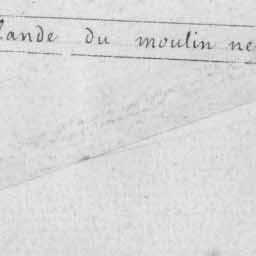 lande du moulin ne